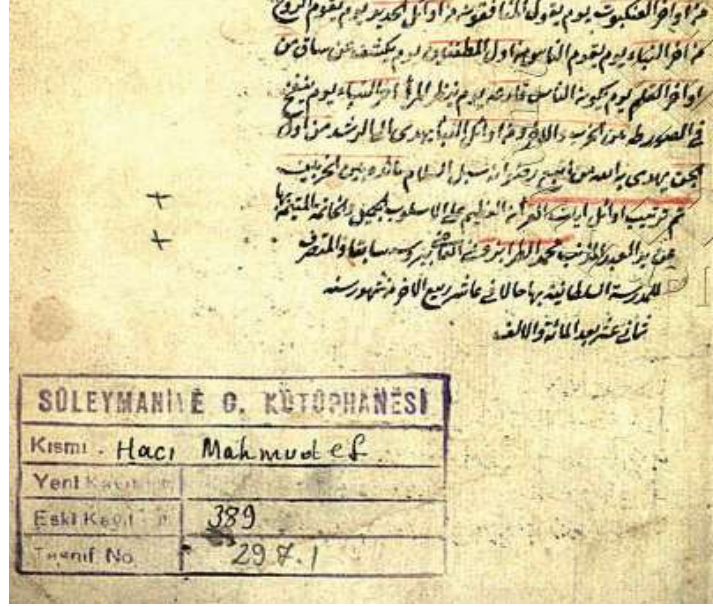 من اواخر العنكبوت يوم يقول المنافقون من اوائل الحديد يوم يقوم الروح
من اخر النباء يوم يقوم الناس من اول المطففين يوم يكشف عن ساق من
اواخر القلم يوم يكون الناس قارعه يوم ينظر المرأ اخر النباء يوم ينفخ
في الصور طه عن الحزب والاخر من اوائل النبا يهدى الى الرشد من اول
الجن يهدى به الله من اتبع رضوانه سبل السلام مائده بين الحزبين
تم ترتيب اوائل ايات القرآن العظيم على الاسلوب الجميل والخاتمة
عن يد العبد المذنب محمد الطرابزوني سابقا والمتصرف
للمدرسة السلطانية بها حالا في عاشر ربيع الاخر من شهور سنه
ثماني عشر بعد المائة والالف
SÜLEYMANİYE G. KÜTÜPHANESİ
Kısmı Hacı Mahmud ef
Yeni Kayıt
Eski Kayıt 389
Tasnif No. 297.1